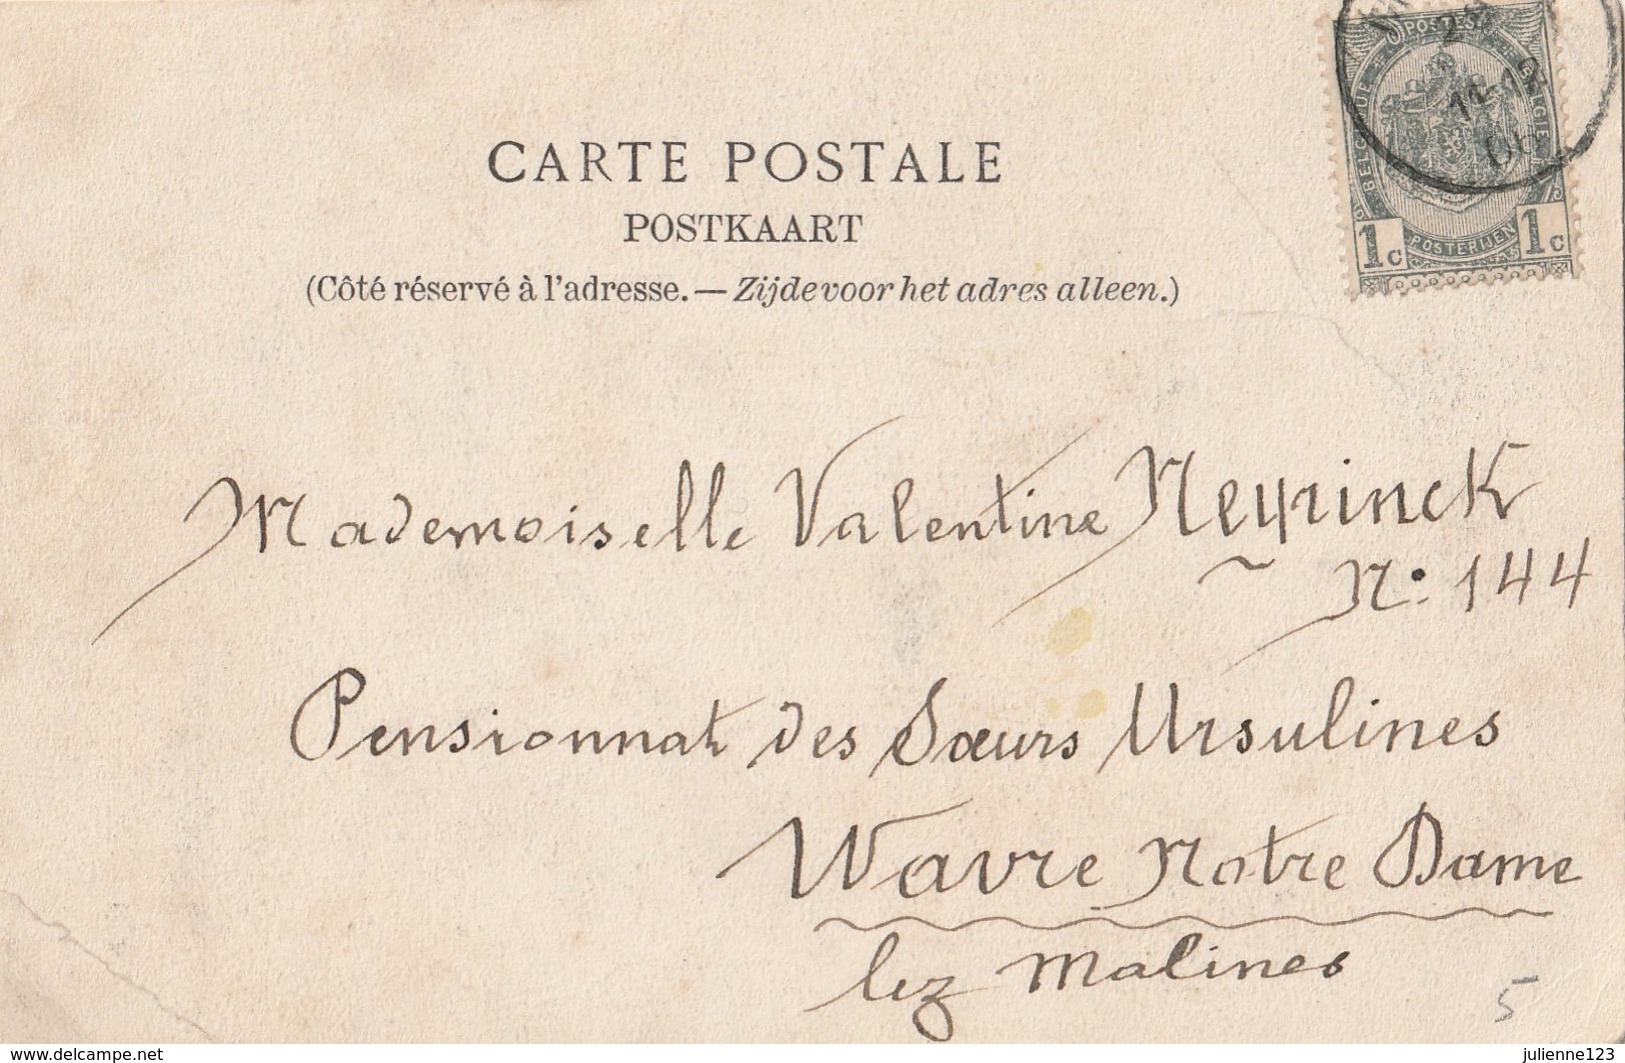 POSTES
BELGIQUE
BELGIË
11-12
1c POSTERIJEN 1c
CARTE POSTALE
POSTKAART
(Côté réservé à l'adresse. — Zijde voor het adres alleen.)
Mademoiselle Valentine Neyrinck
N° 144
Pensionnat des Sœurs Ursulines
Wavre Notre Dame
lez Malines
5
www.delcampe.net
julienne123